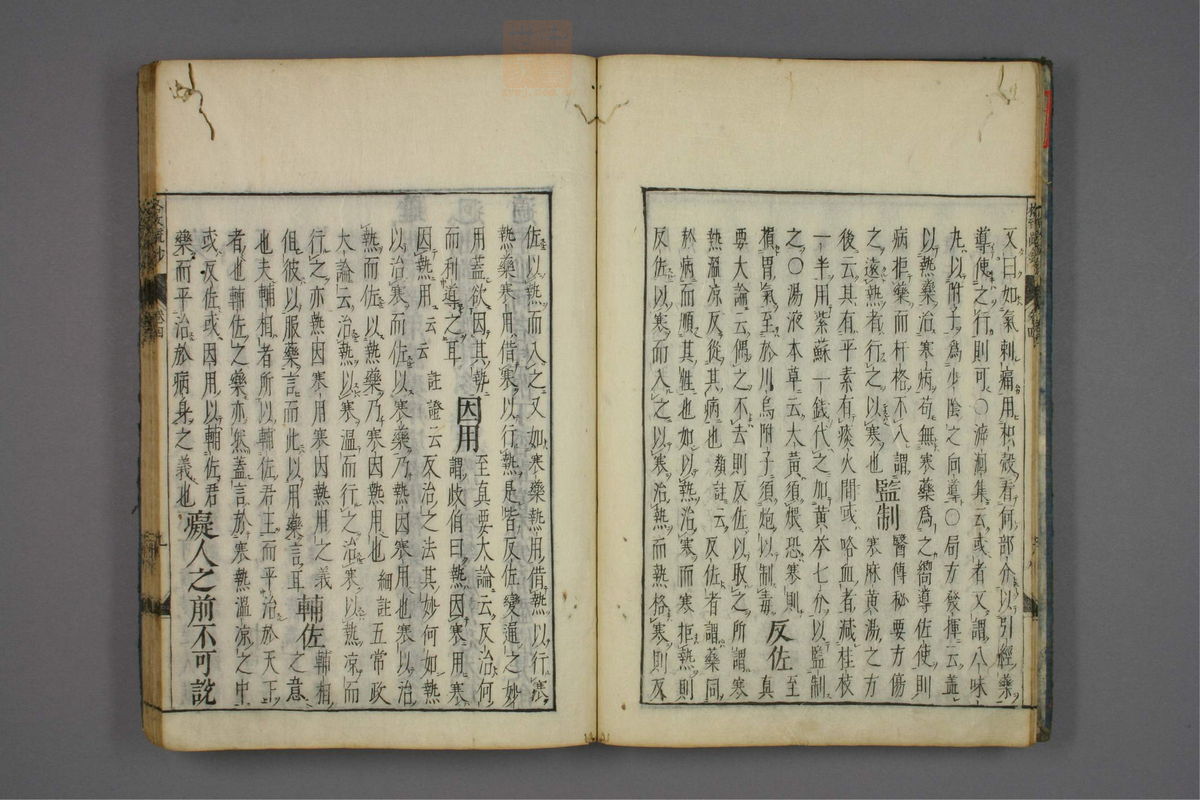 又曰如氣刺痛用枳殼看何部分以引經藥
導使之行則可〇溯洄集云或者又謂八味
九以附子爲少陰之向導〇局方發揮云蓋
以熱藥治寒病苟無寒藥爲之嚮導佐使則
病拒藥而杆格不入謂
之遠熱者行之以寒也 監制 寒麻黄湯之方
醫傳秘要方傷
後云其有平素有痰火間或咯血者減桂枝
一半用紫蘇一錢代之加黄芩七分以監制
之〇湯液本草云大黄須煨恐寒則
損胃氣至於川烏附子須炮以制毒 反佐 至
真
要大論云偶之不去則反佐以取之所謂寒
熱溫凉反從其病也 類註云 反佐者謂藥同
於病而順其性也如以熱治寒而寒拒熱則
反佐以寒而入之以寒治熱而熱格寒則反
佐以熱而入之又如寒藥熱用借熱以行寒
熱藥寒用借寒以行熱是皆反佐變通之妙
用蓋欲因其勢
而利導之耳 因用 至真要大論云反治何
謂岐伯曰熱因寒用寒
因熱用云云 註證云反治之法其妙何如熱
以治寒而佐以寒藥乃熱因寒用也寒以治
熱而佐以熱藥乃寒因熱用也 細註五常政
大論云治熱以寒溫而行之治寒以熱凉而
行之亦熱因寒用寒因熱用之義
但彼以服藥言而此以用藥言耳 輔佐 輔相
之意
也夫輔相者所以輔佐君王而平治於天下
者也輔佐之藥亦然蓋言於寒熱溫凉之中
或反佐或因用以輔佐君
藥而平治於病身之義也 癡人之前不可說